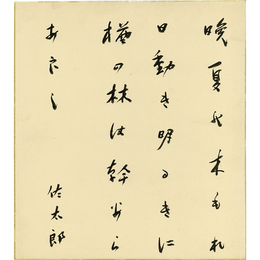 晩夏の木もれ
日動き明るきに
橅の林は幹あら
あらし
佐太郎